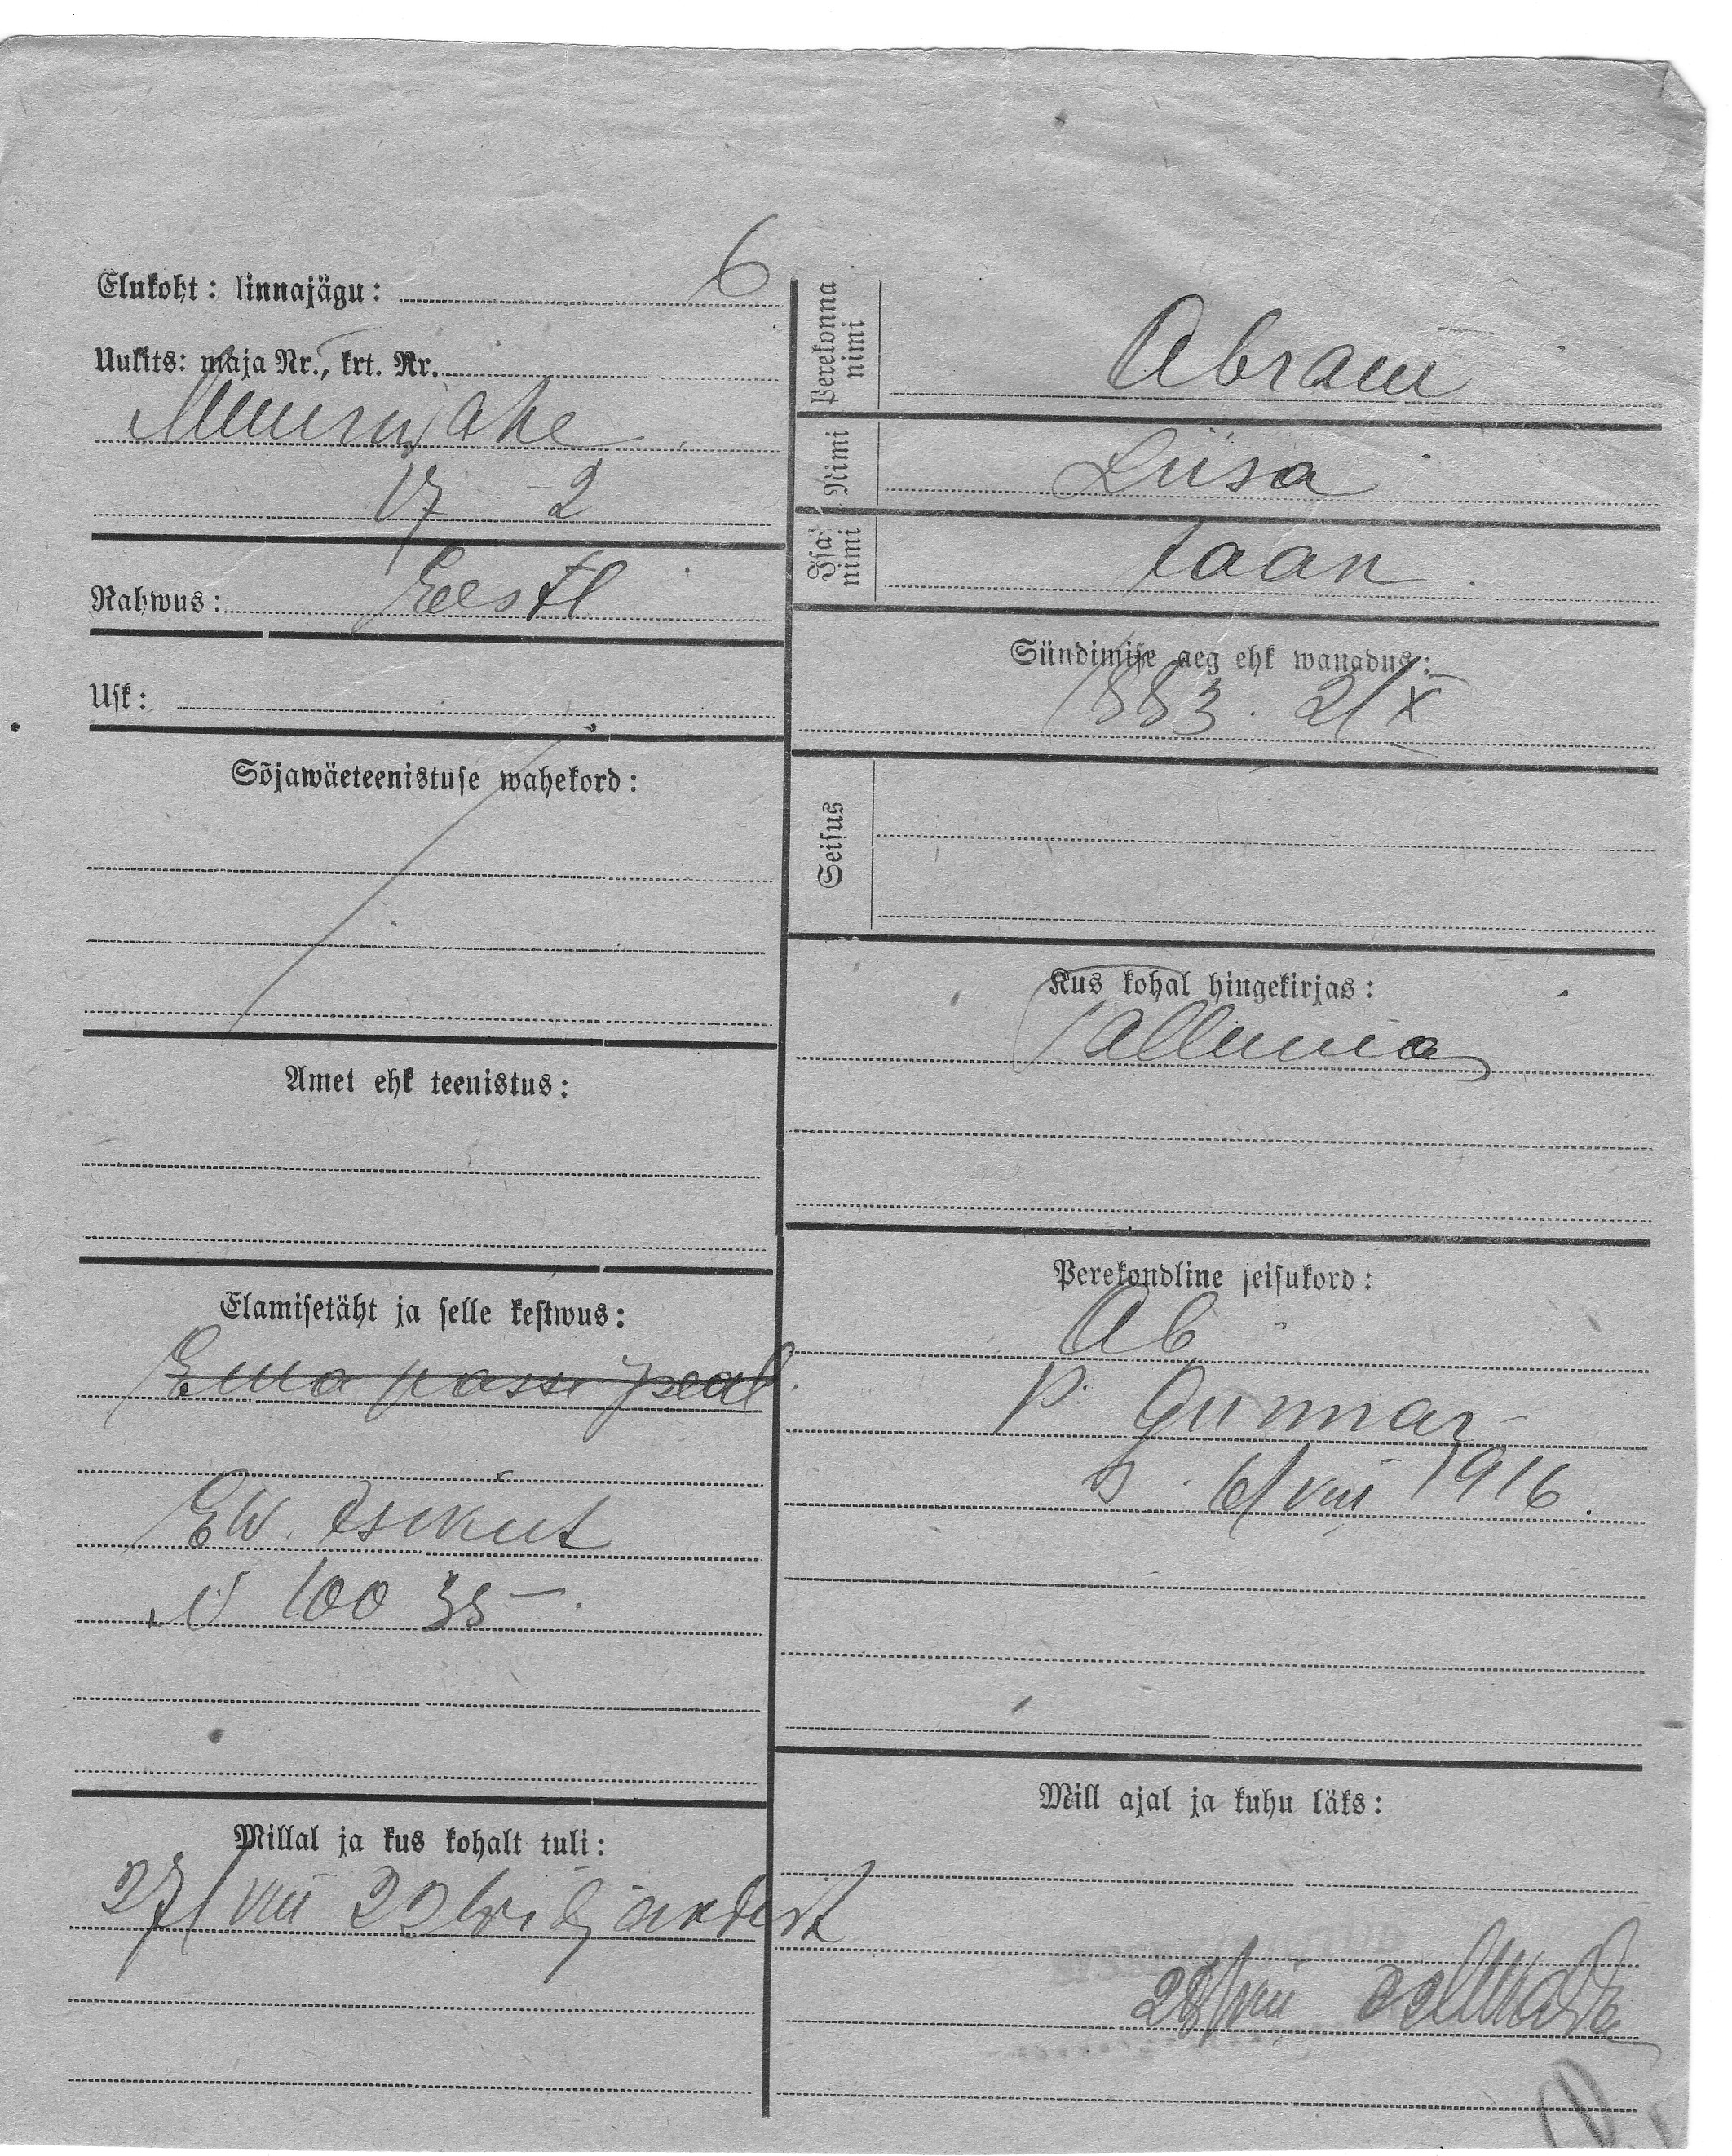 Elukoht: linnajägu: 6
Uulits: maja Nr., krt. Nr.
17 - 2
Rahwus: Eesti
Usk:
Sõjawäeteenistuse wahekord:
Amet ehk teenistus:
Elamisetäht ja selle kestwus:
Ema passi peal
EW. Isikut
N 100 35 -
Millal ja kus kohalt tuli:
27/VIII 22
Perekonna nimi
Abram
Nimi
Liisa
Isa nimi
Jaan
Sündimise aeg ehk wanadus:
1883. 2/X
Seisus
Kus kohal hingekirjas:
Tallinna
Perekondline seisukord:
Ab
p. Gunnar
s. 6/VIII 1916.
Mill ajal ja kuhu läks: